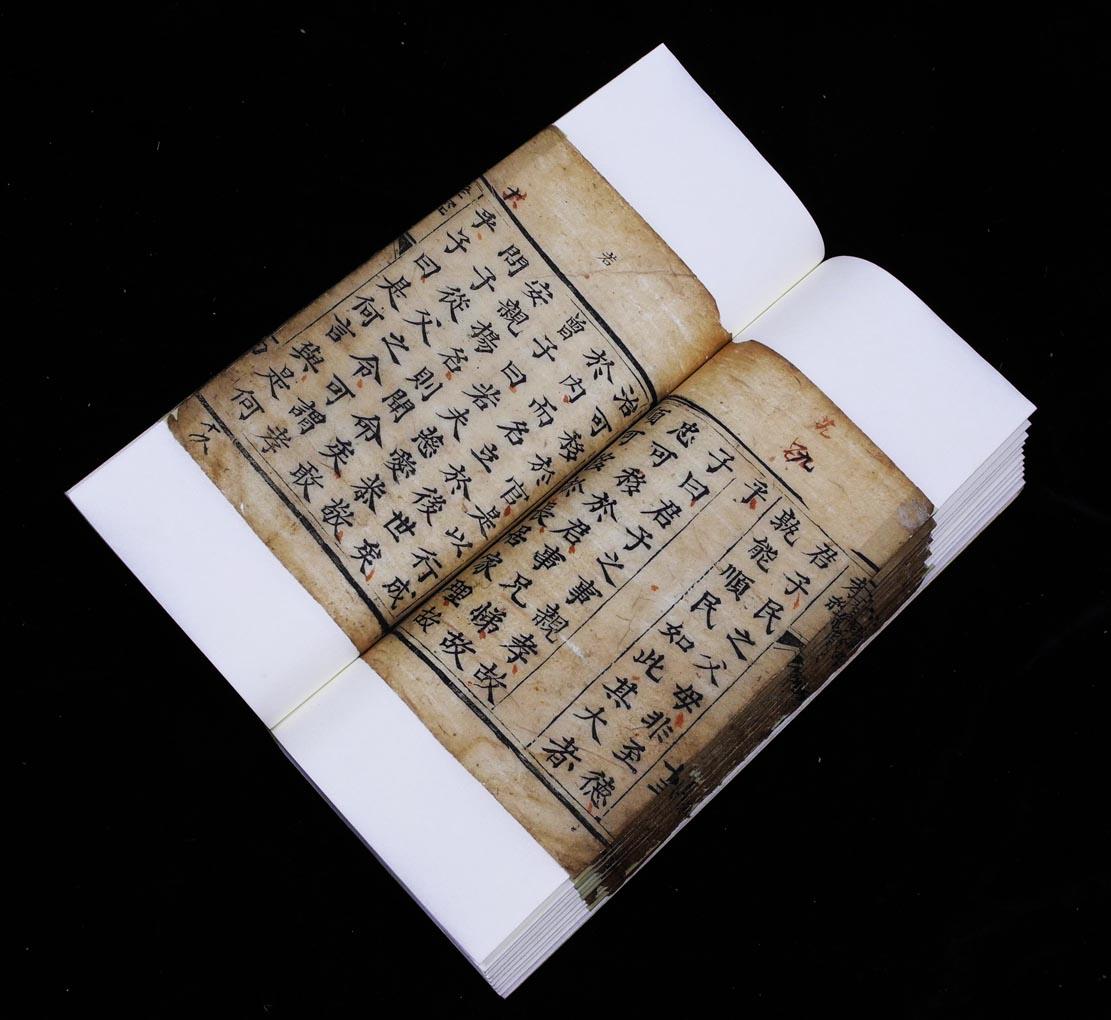 君子民之父母非至德
孰能順民如此其大者
乎
子曰君子之事親孝故
忠可移於君事兄悌故
順可移於長居家理故
治可移於官是以行成
於內而名立於後世矣
曾子曰若夫慈愛恭敬
安親揚名則聞命矣敢
問子從父之令可謂孝
乎子曰是何言與是何
若
孝經